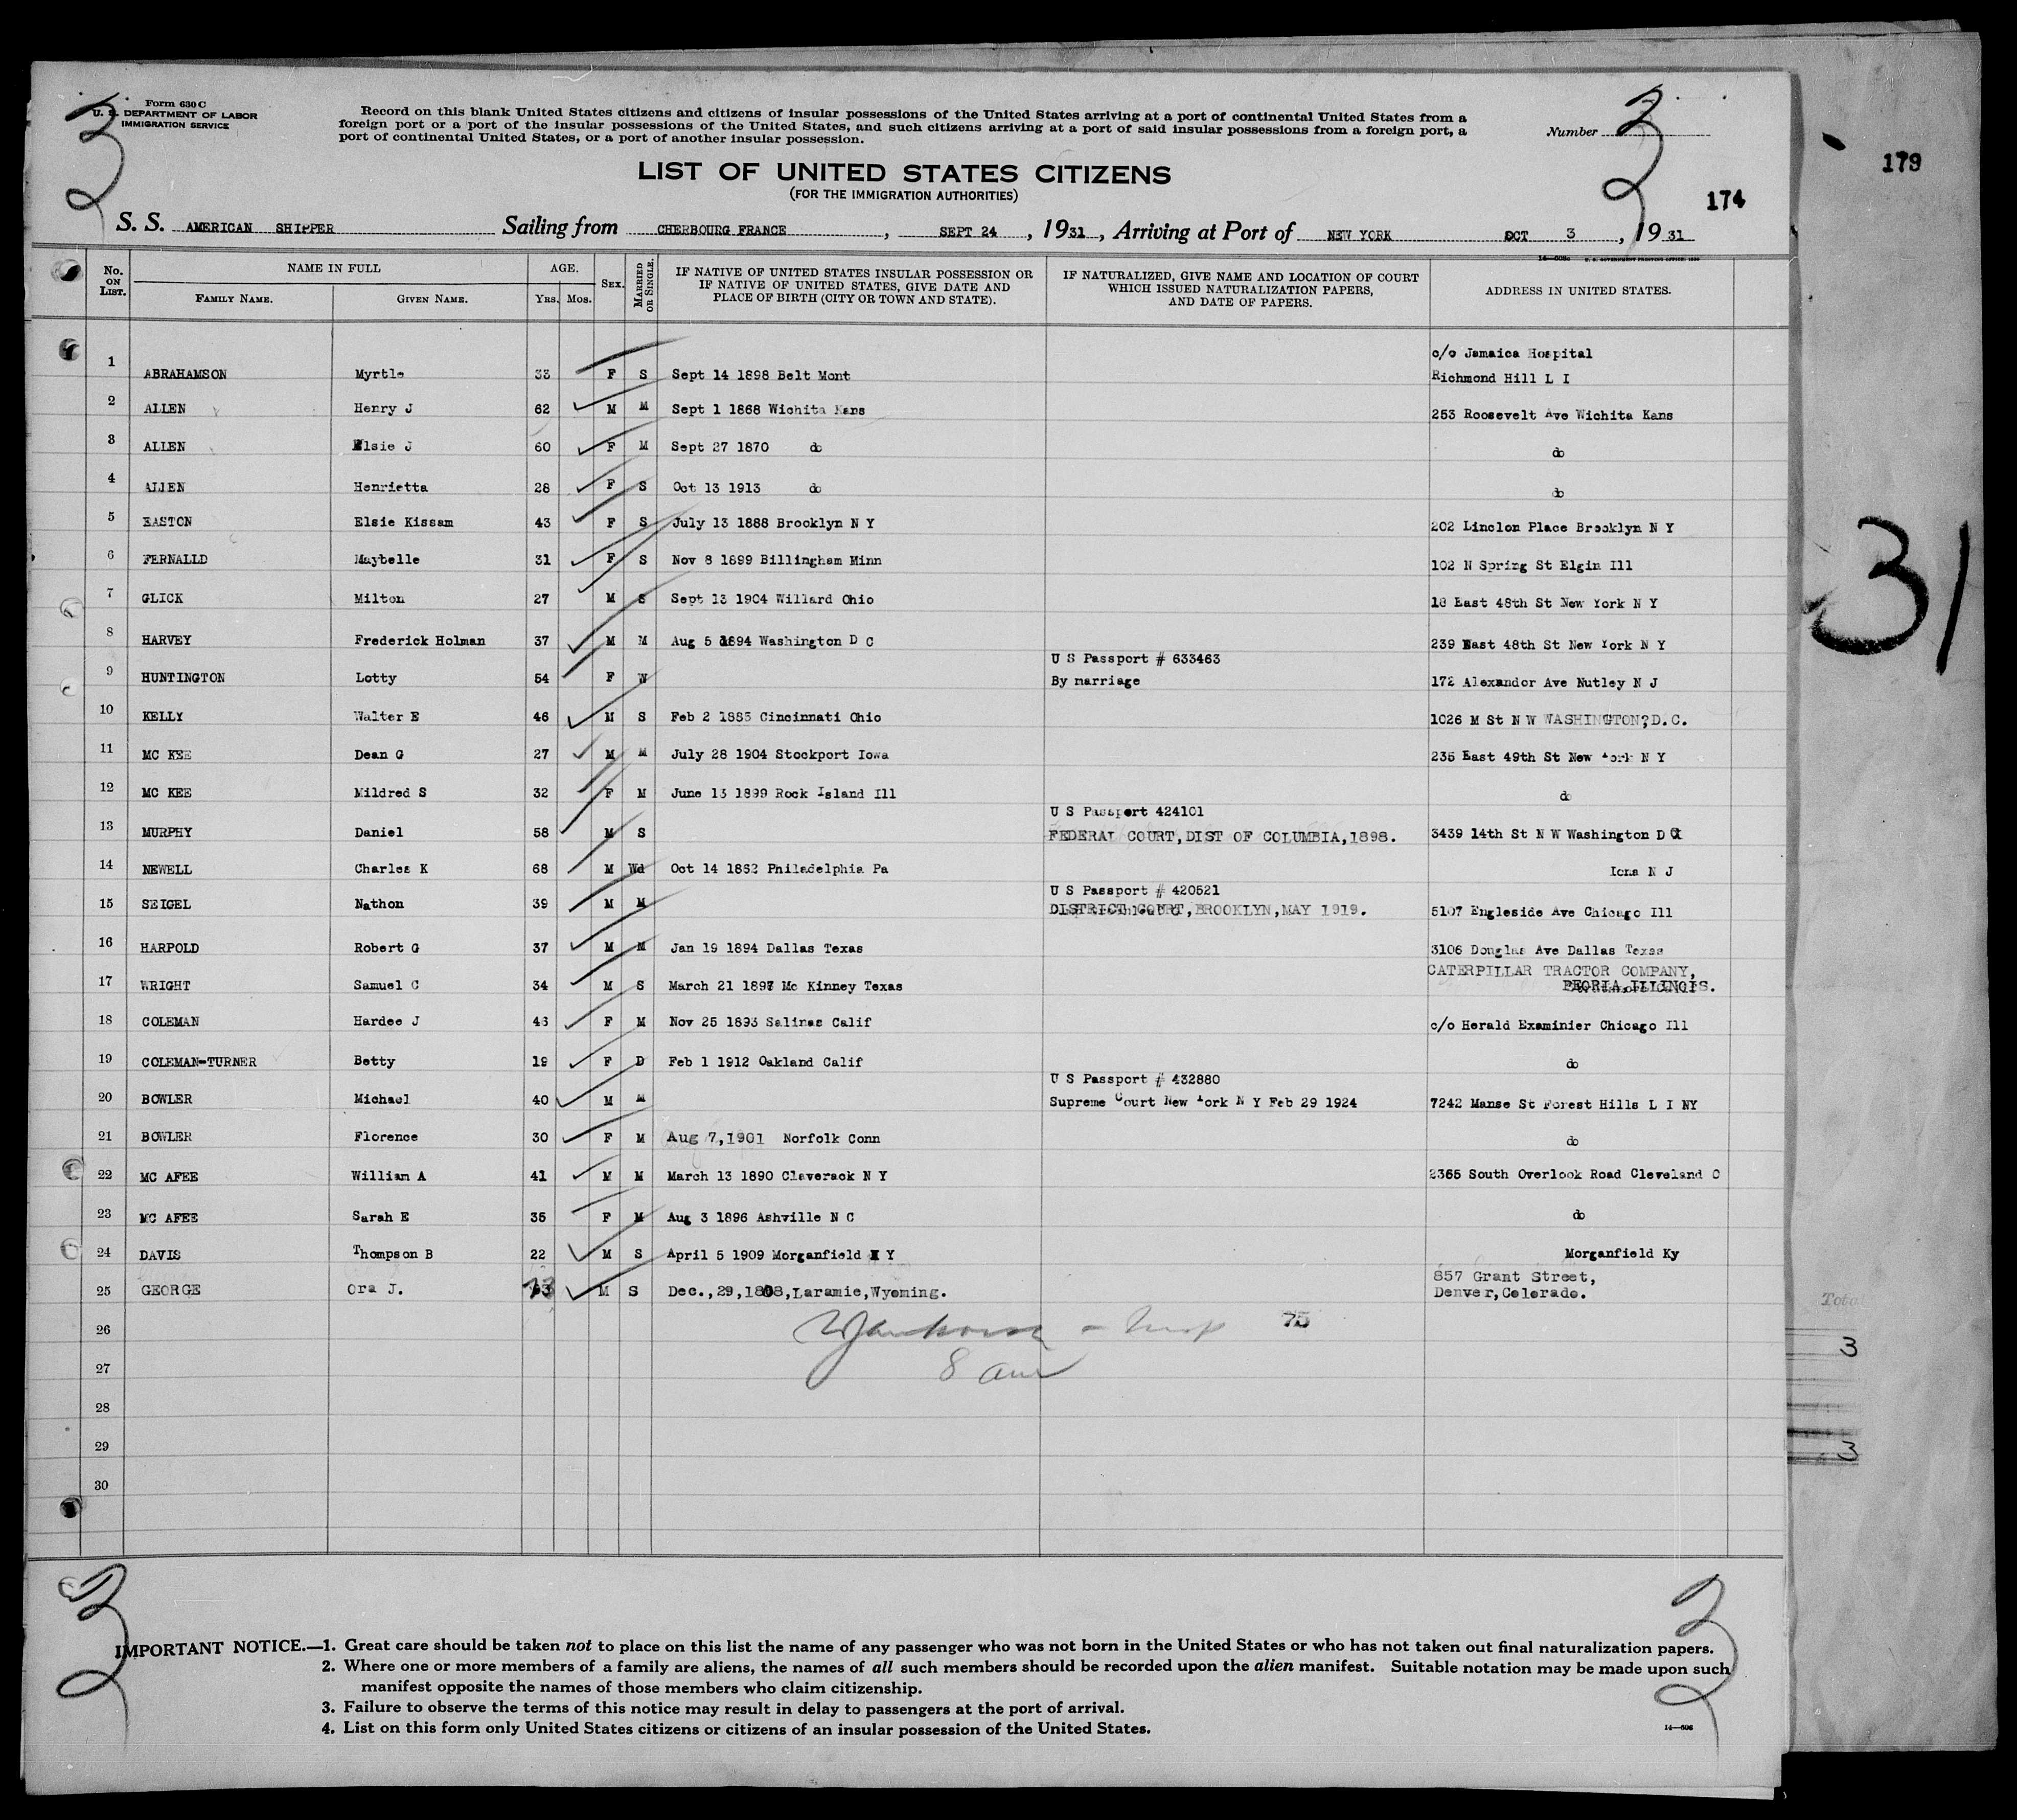 Form 630 C
U. S. DEPARTMENT OF LABOR
IMMIGRATION SERVICE
3
Record on this blank United States citizens and citizens of insular possessions of the United States arriving at a port of continental United States from a
foreign port or a port of the insular possessions of the United States, and such citizens arriving at a port of said insular possessions from a foreign port, a
port of continental United States, or a port of another insular possession.
Number 3
179
LIST OF UNITED STATES CITIZENS
(FOR THE IMMIGRATION AUTHORITIES)
174
S. S. AMERICAN SHIPPER Sailing from CHERBOURG FRANCE, SEPT 24, 1931, Arriving at Port of NEW YORK OCT 3, 1931
No. ON LIST. NAME IN FULL FAMILY NAME. GIVEN NAME. AGE. YRS. MOS. SEX. MARRIED OR SINGLE. IF NATIVE OF UNITED STATES INSULAR POSSESSION OR IF NATIVE OF UNITED STATES, GIVE DATE AND PLACE OF BIRTH (CITY OR TOWN AND STATE). IF NATURALIZED, GIVE NAME AND LOCATION OF COURT WHICH ISSUED NATURALIZATION PAPERS, AND DATE OF PAPERS. ADDRESS IN UNITED STATES.
c/o Jamaica Hospital
1 ABRAHAMSON Myrtle 33 F S Sept 14 1898 Belt Mont Richmond Hill L I
2 ALLEN Henry J 62 M M Sept 1 1868 Wichita Kans 253 Roosevelt Ave Wichita Kans
3 ALLEN Elsie J 60 F M Sept 27 1870 do do
4 ALLEN Henrietta 28 F S Oct 13 1913 do do
5 EASTON Elsie Kissam 43 F S July 13 1888 Brooklyn N Y 202 Linclon Place Brooklyn N Y
6 FERNALLD Maybelle 31 F S Nov 8 1899 Billingham Minn 102 N Spring St Elgin Ill
7 GLICK Milton 27 M S Sept 13 1904 Willard Ohio 18 East 48th St New York N Y
8 HARVEY Frederick Holman 37 M M Aug 5 1894 Washington D C 239 East 48th St New York N Y
U S Passport # 633463
9 HUNTINGTON Lotty 54 F W By marriage 172 Alexandor Ave Nutley N J
10 KELLY Walter E 46 M S Feb 2 1885 Cincinnati Ohio 1026 M St N W WASHINGTON?D.C.
11 MC KEE Dean G 27 M M July 28 1904 Stockport Iowa 235 East 49th St New York N Y
12 MC KEE Mildred S 32 F M June 13 1899 Rock Island Ill do
U S Passport 424101
13 MURPHY Daniel 58 M S FEDERAL COURT,DIST OF COLUMBIA,1898. 3439 14th St N W Washington D C
14 NEWELL Charles K 68 M Wd Oct 14 1862 Philadelphia Pa Iona N J
U S Passport # 420521
15 SEIGEL Nathon 39 M M DISTRICT COURT,BROOKLYN,MAY 1919. 5107 Engleside Ave Chicago Ill
16 HARPOLD Robert G 37 M M Jan 19 1894 Dallas Texas 3106 Douglas Ave Dallas Texas
CATERPILLAR TRACTOR COMPANY,
17 WRIGHT Samuel C 34 M S March 21 1897 Mc Kinney Texas PEORIA,ILLINOIS.
18 COLEMAN Hardee J 43 F M Nov 25 1893 Salinas Calif c/o Herald Examinier Chicago Ill
19 COLEMAN-TURNER Betty 19 F D Feb 1 1912 Oakland Calif do
U S Passport # 432880
20 BOWLER Michael 40 M M Supreme Court New York N Y Feb 29 1924 7242 Manse St Forest Hills L I NY
21 BOWLER Florence 30 F M Aug 7,1901 Norfolk Conn do
22 MC AFEE William A 41 M M March 13 1890 Claverack N Y 2365 South Overlook Road Cleveland O
23 MC AFEE Sarah E 35 F M Aug 3 1896 Ashville N C do
24 DAVIS Thompson B 22 M S April 5 1909 Morganfield K Y Morganfield Ky
857 Grant Street,
25 GEORGE Ora J. M S Dec.,29,1808,Laramie,Wyoming. Denver,Colorado.
26 75
27 8 am
28
29
30
31
Tota
3
3
3
3
IMPORTANT NOTICE.—1. Great care should be taken not to place on this list the name of any passenger who was not born in the United States or who has not taken out final naturalization papers.
2. Where one or more members of a family are aliens, the names of all such members should be recorded upon the alien manifest. Suitable notation may be made upon such
manifest opposite the names of those members who claim citizenship.
3. Failure to observe the terms of this notice may result in delay to passengers at the port of arrival.
4. List on this form only United States citizens or citizens of an insular possession of the United States.
14—608